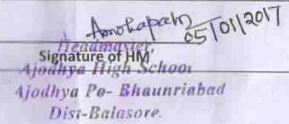 05/01/2017
Headmaster
Signature of HM
Ajodhya High School
Ajodhya Po- Bhaunriabad
Dist-Balasore.